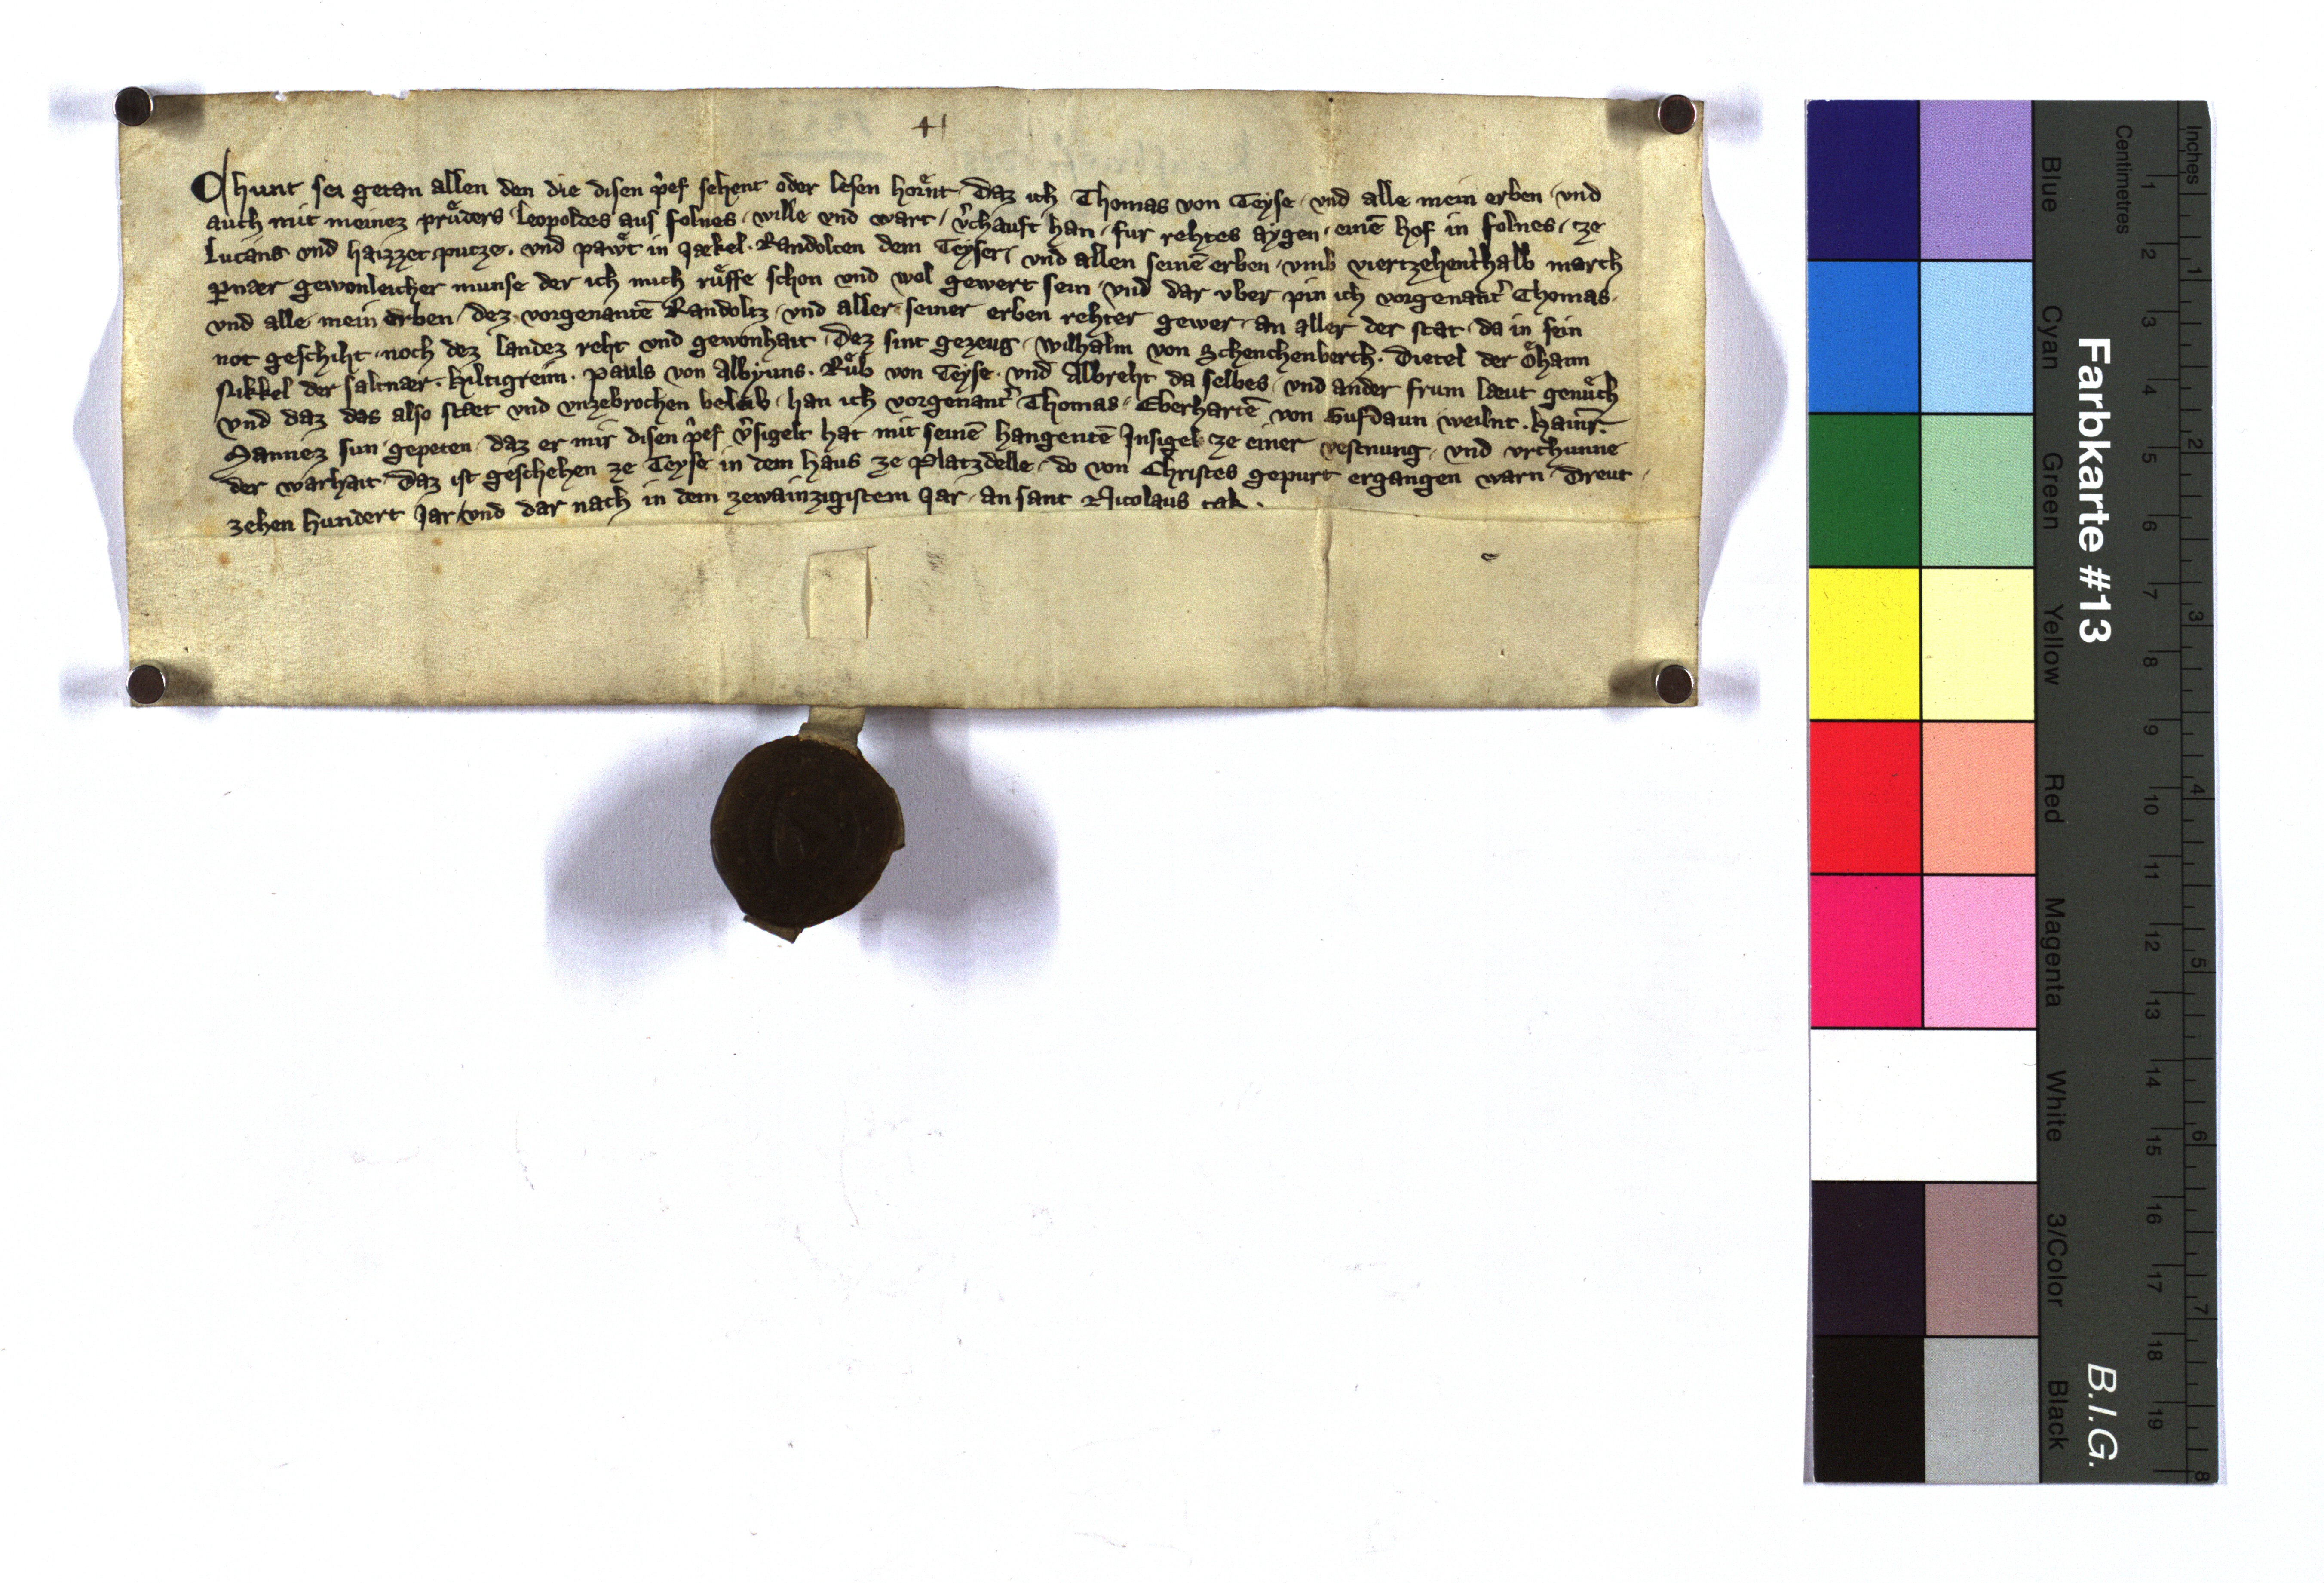 41
Chunt sei getan allen den die disen p̾ef sehent oder lesen hoͤrnt. Daz ich Thomas von Teyse. vnd alle mein erben vnd
auch mit meinez pruͤders Leopoldes aus folnes. wille vnd wart. v̾chauft han. fur rehtes aygen. einē hof in folnes. ze
Lucans vnd haizzet putze. vnd pawͤt in Jækel. Randolten dem Teyser. vnd allen seinē erben. vmb viertzehenthalb march
p̲nær gewonleicher munse der ich mich ruͤffe schon vnd wol gewert sein. vnd dar vber pin ich vorgenant̾ Thomas.
vnd alle mein erben. dez vorgenantē Randoltz. vnd aller seiner erben rehter gewer. an aller der stat. da in sein
not geschiht. noch dez landez reht vnd gewonhait. Dez sint gezeug. wilhalm von Schenchenberch. Dietel der oͤhaim
Nikkel der saltnær. Hiltigreim. pauls von Albyuns. Ruͤb von Teyse. vnd Albreht da selbes. vnd ander frum læut genuͤch
vnd daz das also stæt vnd vnzebrochen beleib. han ich vorgenant̾ Thomas. Eberhartē von Gufdaun weilnt. hainr̄.
Mannez sun gepeten. daz er mir disen p̾ef v̾sigelt hat mit seinē hangentē Insigel. ze einer vestnung. vnd vrchunne
der warhait. Daz ist geschehen ze Teyse in dem haus ze Platzdelle. do von Christes gepurt ergangen warn. Dreut
zehen hundert Jar. vnd dar nach in dem zewainzigistem Jar. an sant Nicolaus tak.
Farbkarte #13
B.I.G.
Inches
Centimetres
1 2 3 4 5 6 7 8 9 10 11 12 13 14 15 16 17 18 19
1 2 3 4 5 6 7 8
Blue Cyan Green Yellow Red Magenta White 3/Color Black